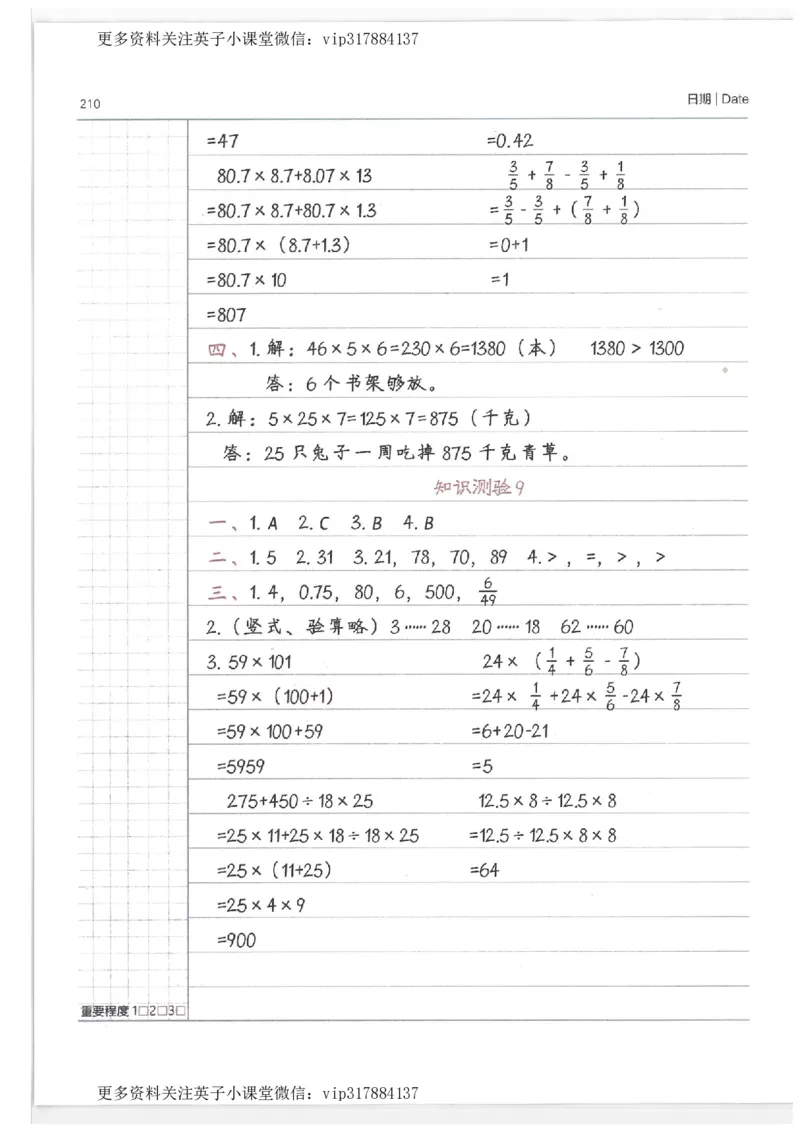 更多资料关注英子小课堂微信：vip317884137
210 日期 | Date
=47 =0.42
80.7×8.7+8.07×13 3/5 + 7/8 - 3/5 + 1/8
=80.7×8.7+80.7×1.3 = 3/5 - 3/5 + （7/8 + 1/8）
=80.7×（8.7+1.3） =0+1
=80.7×10 =1
=807
四、1. 解：46×5×6=230×6=1380（本） 1380 > 1300
答：6个书架够放。
2. 解：5×25×7=125×7=875（千克）
答：25只兔子一周吃掉875千克青草。
知识测验9
一、1. A 2. C 3. B 4. B
二、1. 5 2. 31 3. 21，78，70，89 4. >，=，>，>
三、1. 4，0.75，80，6，500，6/49
2.（竖式、验算略）3……28 20……18 62……60
3. 59×101 24×（1/4 + 5/6 - 7/8）
=59×（100+1） =24× 1/4 +24× 5/6 -24× 7/8
=59×100+59 =6+20-21
=5959 =5
275+450÷18×25 12.5×8÷12.5×8
=25×11+25×18÷18×25 =12.5÷12.5×8×8
=25×（11+25） =64
=25×4×9
=900
重要程度 1□2□3□
更多资料关注英子小课堂微信：vip317884137